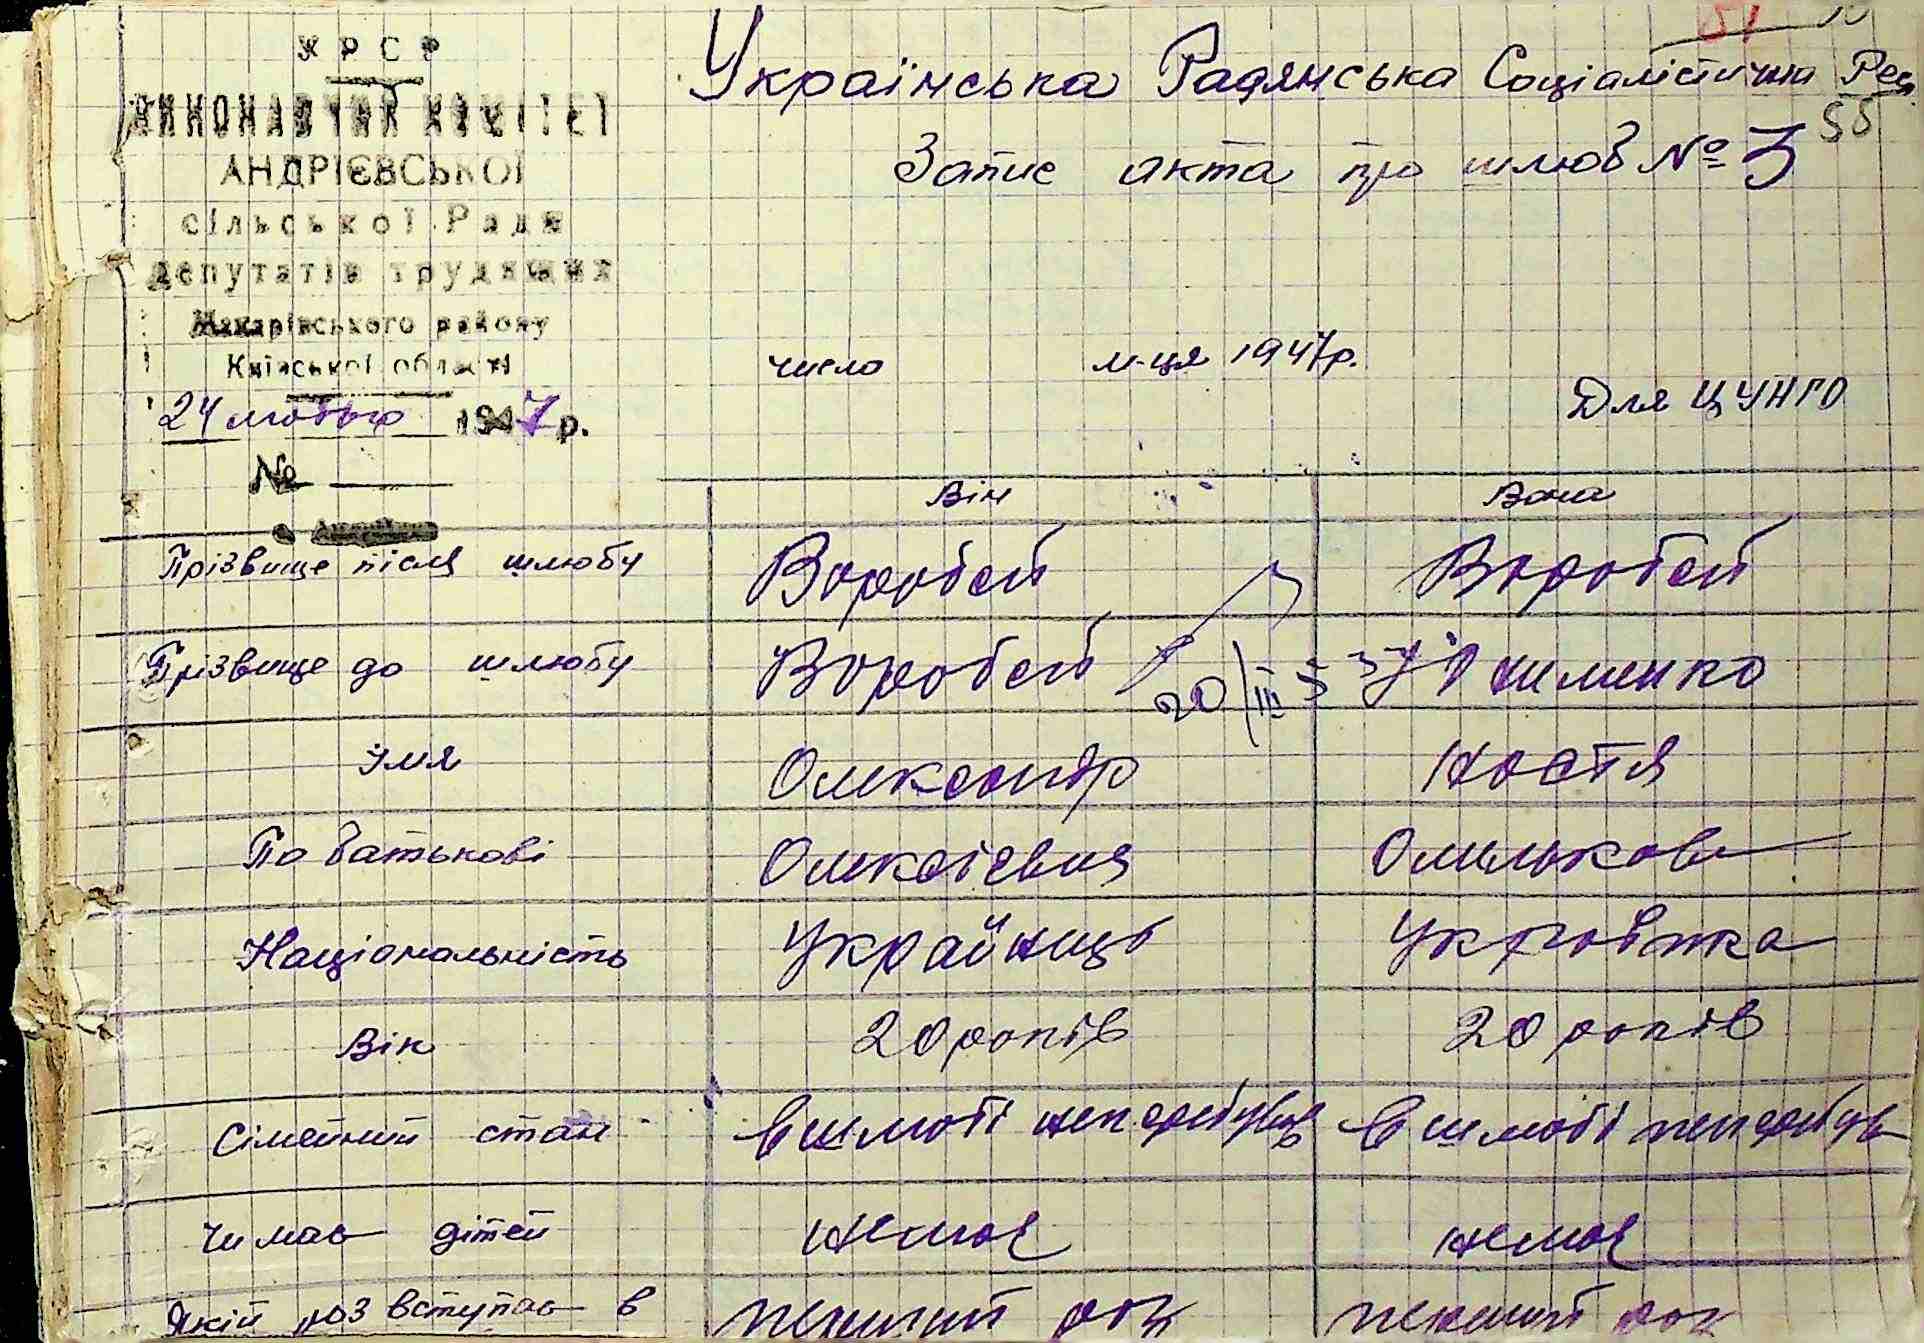 УРСР
ВИКОНАВЧИЙ КОМІТЕТ
АНДРІЄВСЬКОЇ
сільської Ради
депутатів трудящих
Макарівського району
Київської області
24 лютого 1947 р.
№
51
Українська Радянська Соціалістична Рес
55
Запис акта про шлюб № 3
число м-ця 1947р.
Для ЦУНГО
Він Вона
Прізвище після шлюбу Воробей Воробей
Прізвище до шлюбу Воробей
20/III 53
Імя Олександр Настя
По батькові Олексієвич
Національність Украйнець Украінка
Вік 20 років 20 років
Сімейний стан в шлюбі неперебував в шлюбі неперебув
Чи має дітей немає немає
Який раз вступає в перший раз перший раз